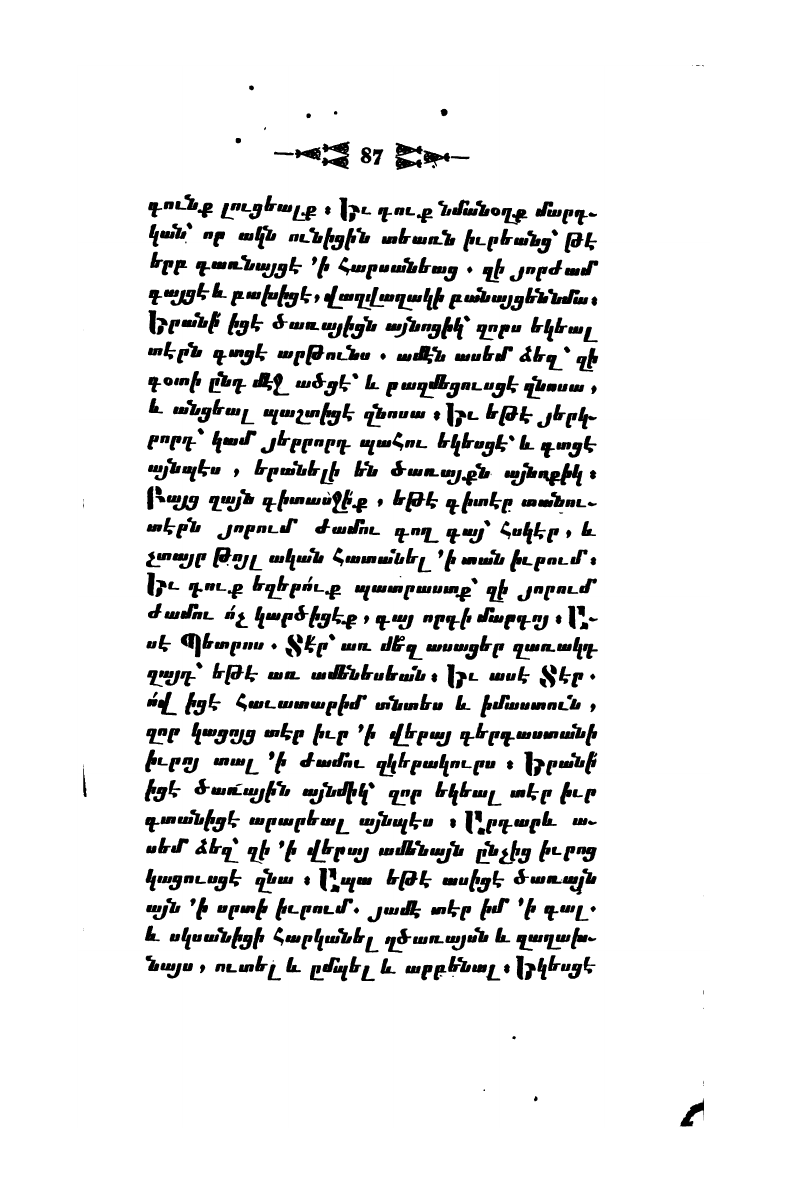 87
գունք լուցեալք ։ Եւ դուք նմանօղք մարդ֊
կան՝ որ ակն ունիցին տեառն իւրեանց՝ թէ
երբ դառնայցէ ՚ի հարսանեաց . զի յորժամ
գայցէ և բախիցէ, վաղվաղակի բանայցեննմա։
Երանի՜ իցէ ծառայիցն այնոցիկ՝ զորս եկեալ
տէրն գտցէ արթունս . ամէն ասեմ ձեզ՝ զի
գօտի ընդ մէջ ածցէ՝ և բազմեցուսցէ զնոսա ,
և անցեալ պաշտիցէ զնոսա ։ Եւ եթէ յերկ֊
րորդ՝ կամ յերրորդ պահու եկեսցէ՝ և գտցէ
այնպէս , երանելի են ծառայքն այնոքիկ ։
Բայց զայն գիտասջի՛ք , եթէ գիտէր տանու֊
տէրն յորում ժամու գող գայ՝ հսկէր , և
չտայր թոյլ ական հատանել ՚ի տան իւրում ։
Եւ դուք եղերո՛ւք պատրաստք՝ զի յորում
ժամու ո՛չ կարծիցէք , գայ որդի մարդոյ ։ Ա֊
սէ Պետրոս . Տէ՛ր՝ առ մե՞զ ասացեր զառակդ
զայդ՝ եթէ առ ամենեսեան ։ Եւ ասէ Տէր .
ո՛վ իցէ հաւատարիմ տնտես և իմաստուն ,
զոր կացոյց տէր իւր ՚ի վերայ գերդաստանի
իւրոյ տալ ՚ի ժամու զկերակուրս ։ Երանի՜
իցէ ծառային այնմիկ՝ զոր եկեալ տէր իւր
գտանիցէ արարեալ այնպէս ։ Արդարև ա֊
սեմ ձեզ՝ զի ՚ի վերայ ամենայն ընչից իւրոց
կացուսցէ զնա ։ Ապա եթէ ասիցէ ծառայն
այն ՚ի սրտի իւրում . յամէ տէր իմ ՚ի գալ .
և սկսանիցի հարկանել զծառայսն և զաղախ֊
նայս , ուտել և ըմպել և արբենալ ։ Եկեսցէ